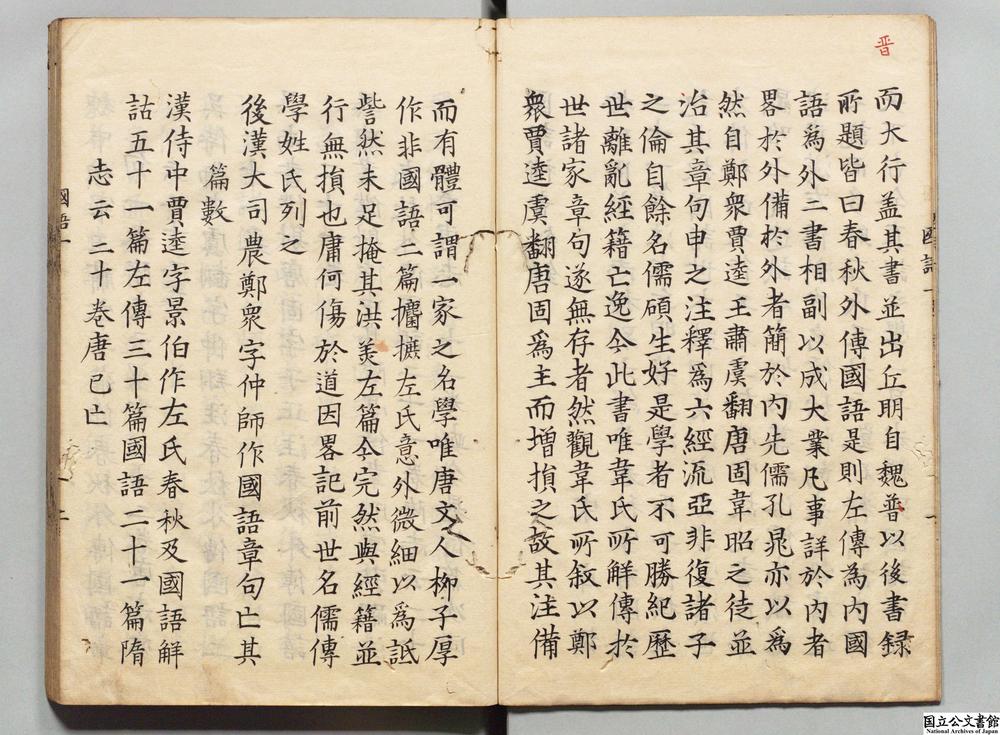 晋
而大行盖其書並出丘明自魏普以後書録
所題皆曰春秋外傳國語是則左傳為内國
語爲外二書相副以成大業凡事詳於内者
畧於外備於外者簡於内先儒孔晁亦以爲
然自鄭衆賈逵王肅虞翻唐固韋昭之徒並
治其章句申之注釋爲六經流亞非復諸子
之倫自餘名儒碩生好是學者不可勝紀歷
世離亂經籍亡逸今此書唯韋氏所觧傳於
世諸家章句遂無存者然觀韋氏所叙以鄭
衆賈逵虞翻唐固爲主而增損之故其注備
而有體可謂一家之名學唯唐文人柳子厚
作非國語二篇攟摭左氏意外微細以爲詆
訾然未足掩其洪美左篇今完然與經籍並
行無損也庸何傷於道因畧記前世名儒傳
學姓氏列之
篇數
後漢大司農鄭衆字仲師作國語章句亡其
漢侍中賈逵字景伯作左氏春秋及國語解
詁五十一篇左傳三十篇國語二十一篇隋
志云二十卷唐已亡
國語一
國語一
国立公文書館
National Archives of Japan